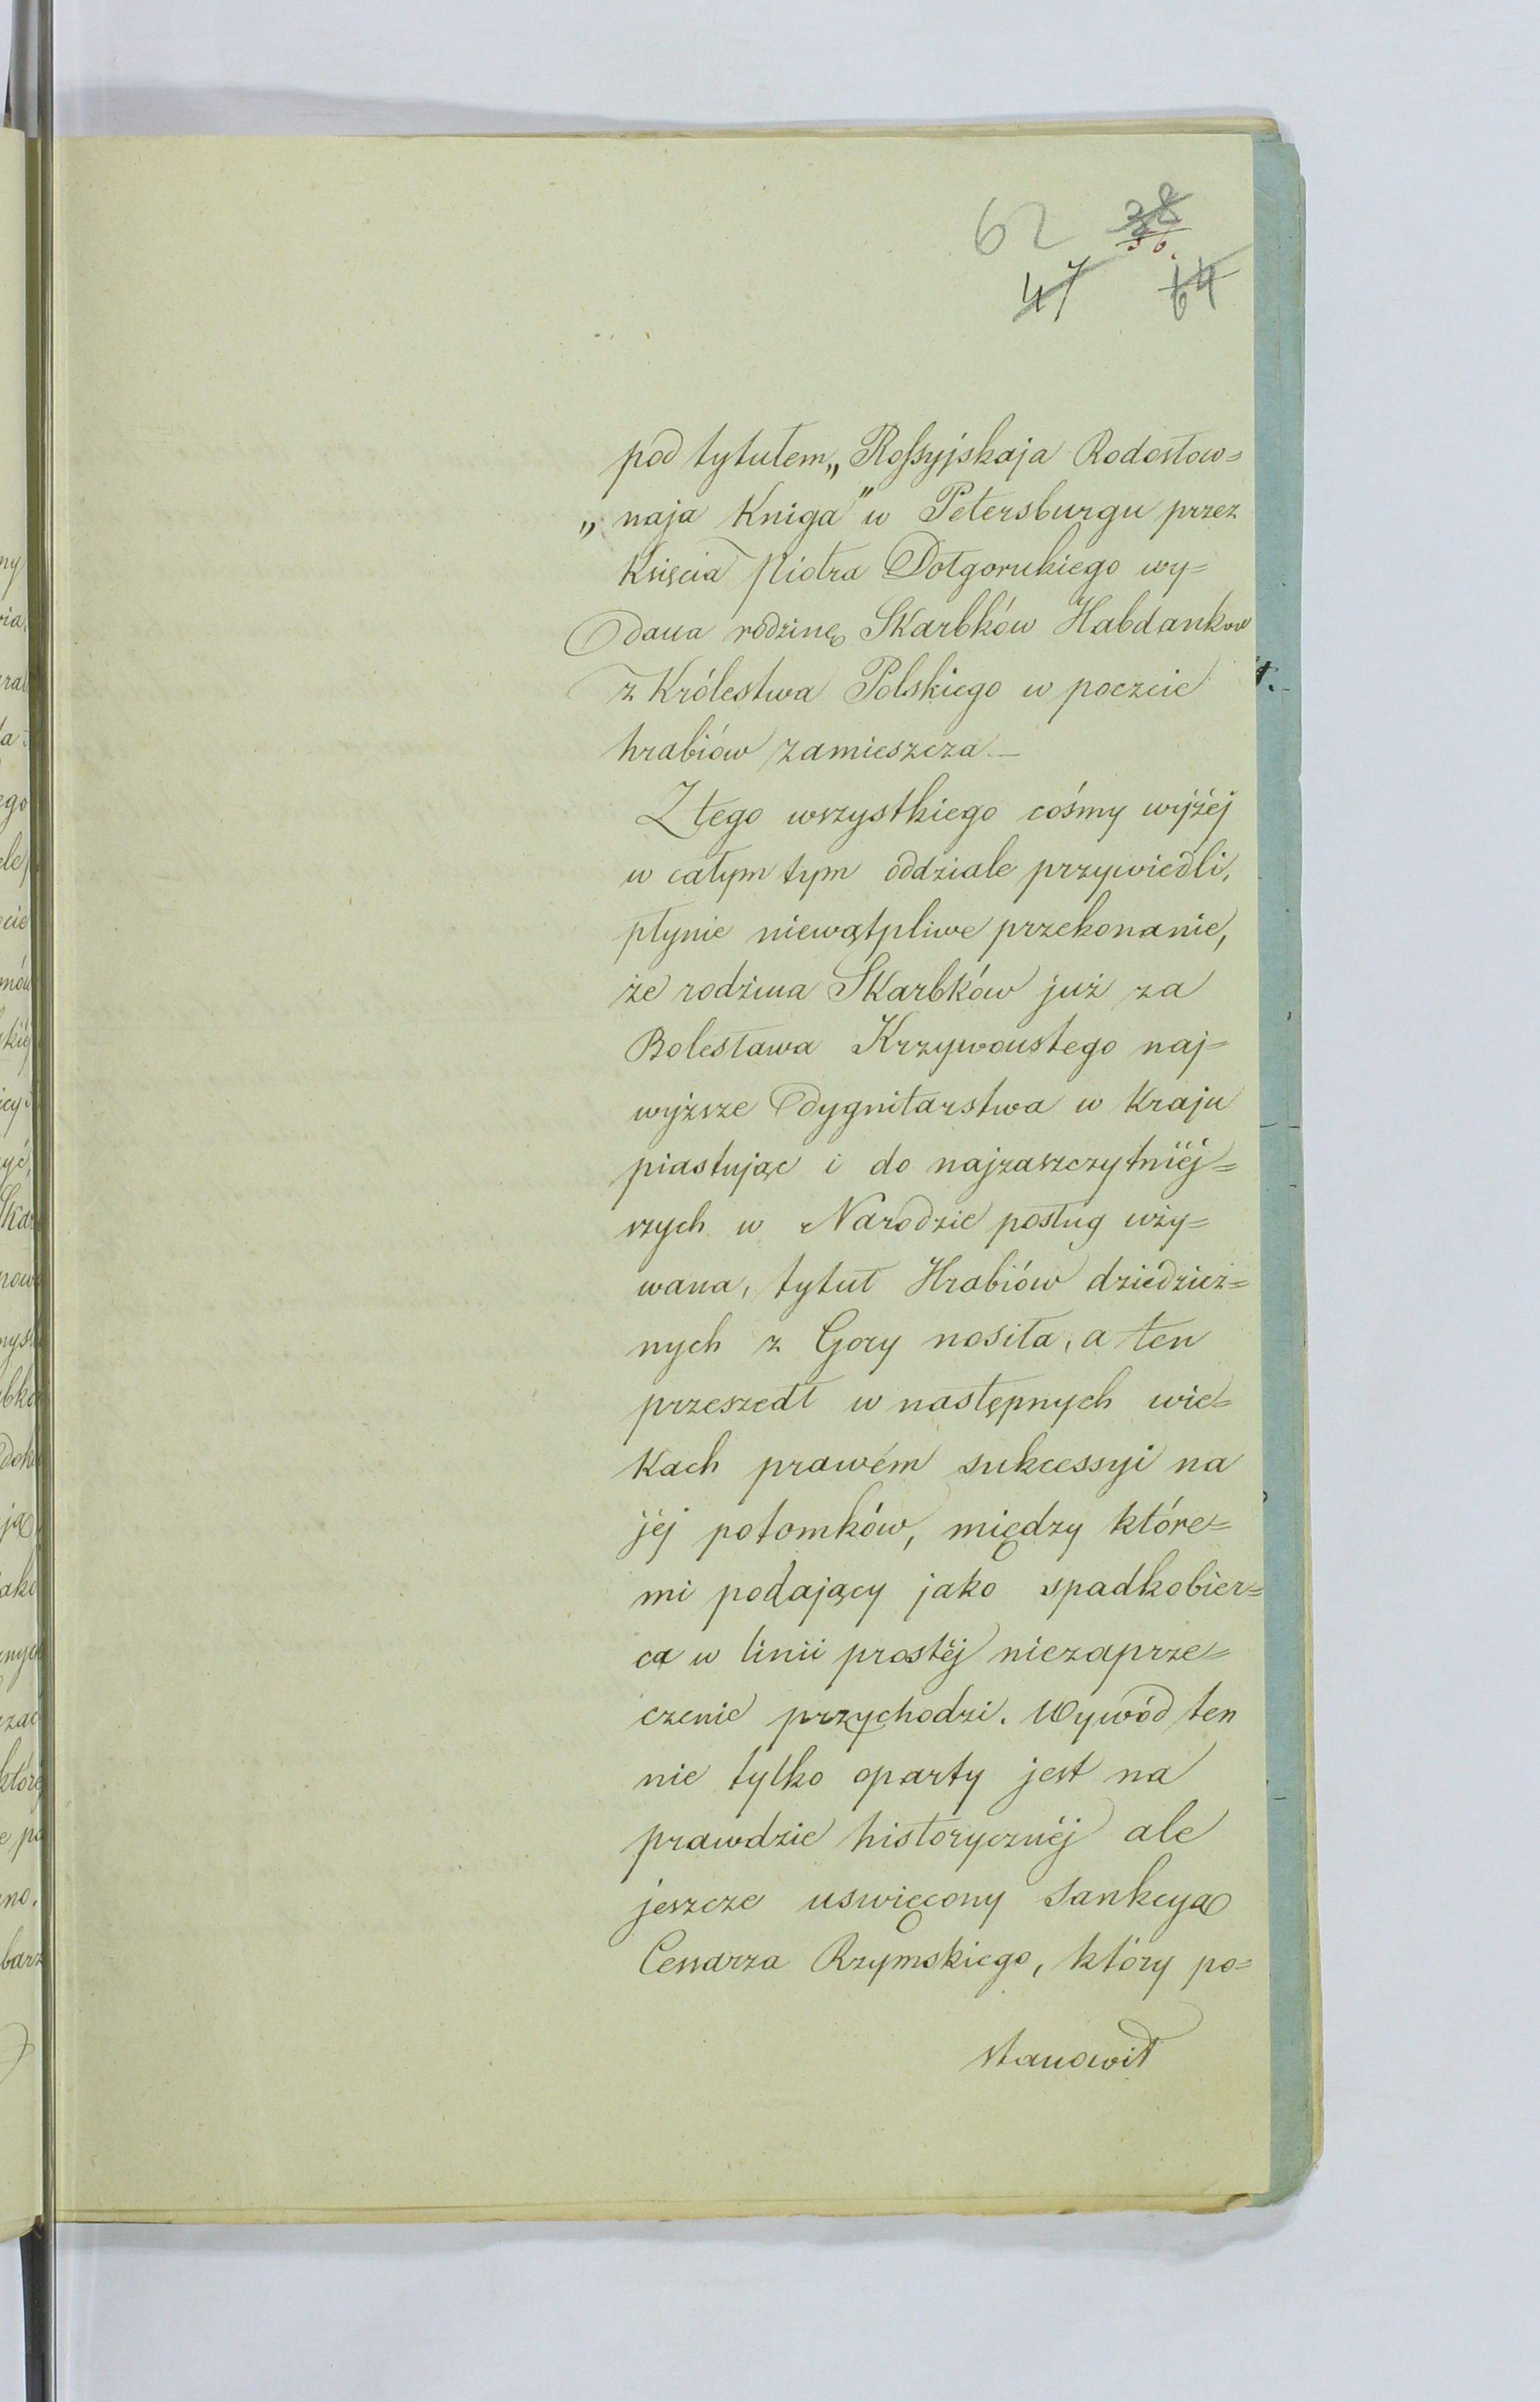 62 38
56.
47 64
pod tytułem „Rossyjskaja Rodosłow=
„naja Kniga" w Petersburgu przez
Księcia Piotra Dołgorukiego wy=
dana rodzinę Skarbków Habdanków
z Królestwa Polskiego w poczcie
hrabiów zamieszcza. —
Z tego wszystkiego cośmy wyżéj
w całym tym oddziale przywiedli,
płynie niewątpliwe przekonanie,
że rodzina Skarbków już za
Bolesława Krzywoustego naj=
wyższe dygnitarstwa w Kraju
piastując i do najzaszczytniéj=
szych w Narodzie posług uży=
wana, tytuł Hrabiów dziedzicz=
nych z Gory nosiła, a ten
przeszedł w następnych wie=
kach prawém sukcessyi na
jéj potomków, między które=
mi podający jako spadkobier=
ca w linii prostéj niezaprze=
czenie przychodzi. Wywód ten
nie tylko oparty jest na
prawdzie historycznéj ale
jeszcze uswięcony Sankcyą
Cesarza Rzymskiego, który po=
stanowił